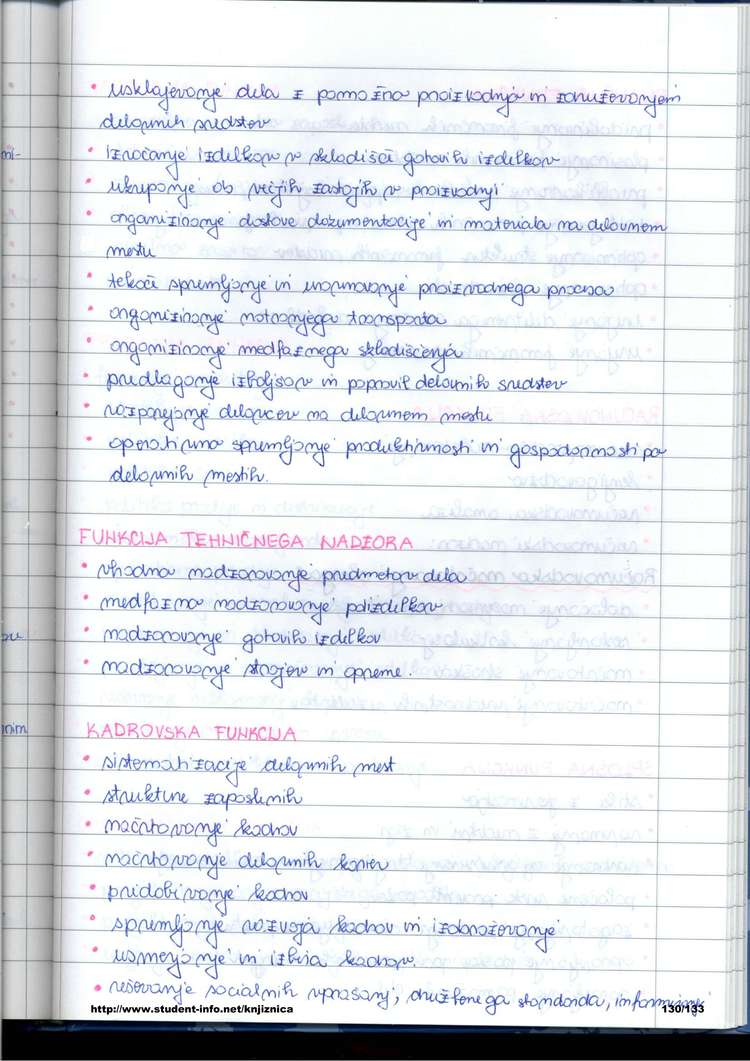 • usklajevanje dela z pomožno proizvodnjo in združevanjem
delovnih sredstev
• izročanje izdelkov v skladišče gotovih izdelkov
• ukrepanje ob večjih zastojih v proizvodnji
• organiziranje dostave dokumentacije in materiala na delovnem
mestu
• tekoče spremljanje in usmerjanje proizvodnega procesa
• organiziranje notranjega transporta
• organiziranje medfaznega skladiščenja
• predlaganje izboljšav in popravil delovnih sredstev
• razporejanje delavcev na delovnem mestu
• operativno spremljanje produktivnosti in gospodarnosti po
delovnih mestih.
FUNKCIJA TEHNIČNEGA NADZORA
• vhodno nadzorovanje predmetov dela
• medfazno nadzorovanje polizdelkov
• nadzorovanje gotovih izdelkov
• nadzorovanje strojev in opreme.
KADROVSKA FUNKCIJA
• sistematizacije delovnih mest
• strukture zaposlenih
• načrtovanje kadrov
• načrtovanje delovnih karier
• pridobivanje kadrov
• spremljanje razvoja kadrov in izobraževanje
• usmerjanje in izbira kadrov.
• reševanje socialnih vprašanj, družbenega standarda, informiranje
http://www.student-info.net/knjiznica 130/133